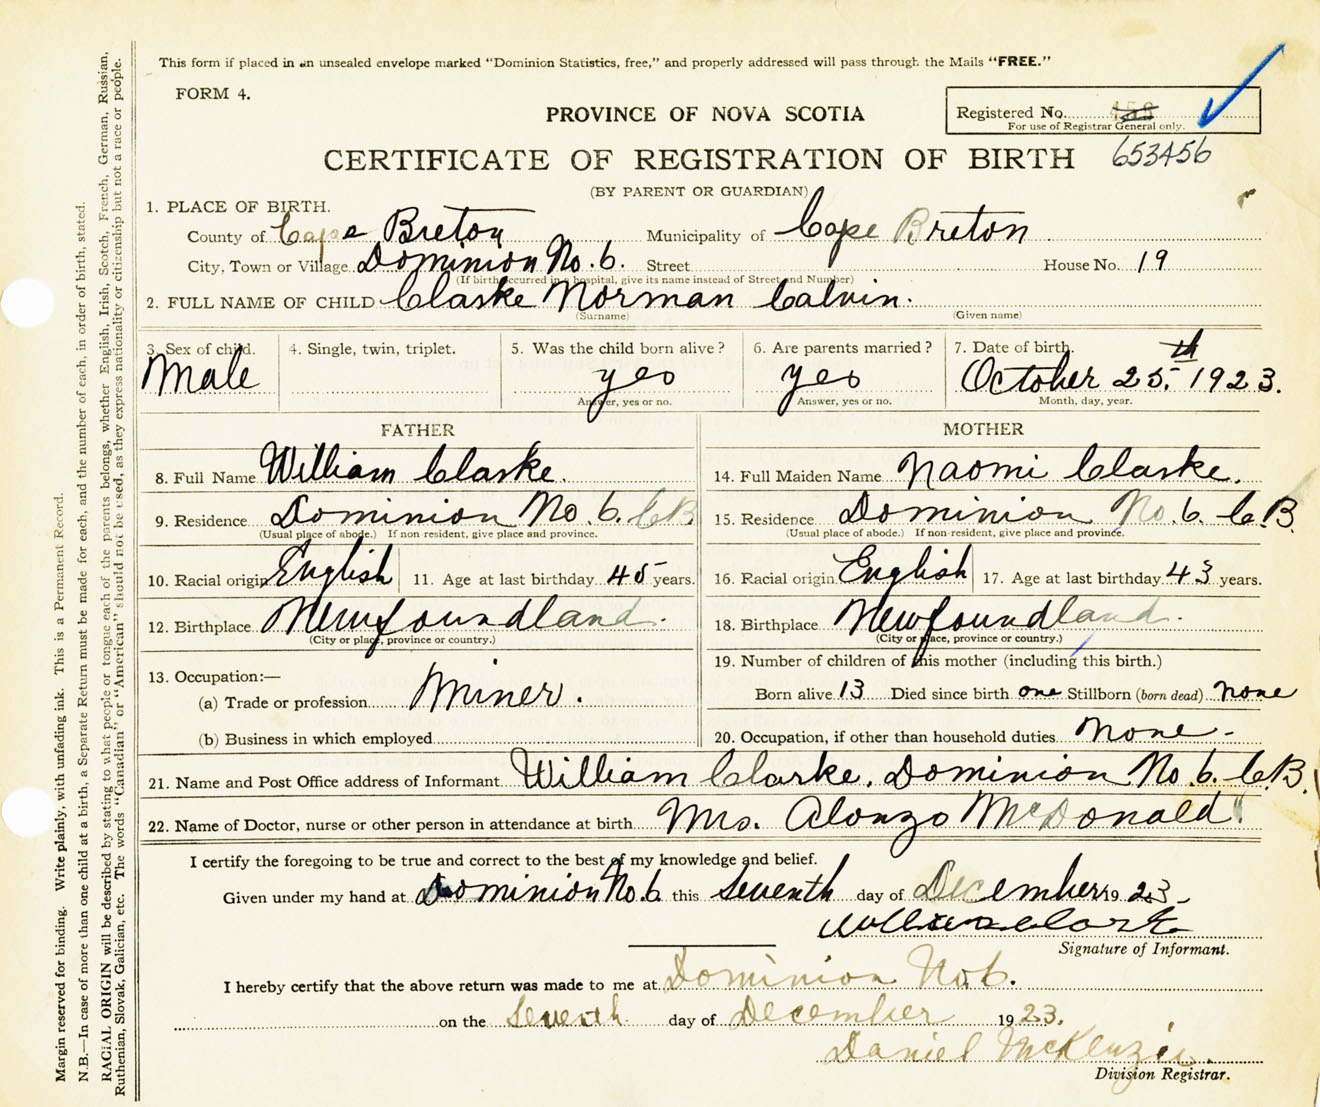 This form if placed in an unsealed envelope marked "Dominion Statistics, free," and properly addressed will pass through the Mails "FREE."
FORM 4.
PROVINCE OF NOVA SCOTIA
Registered No.
For use of Registrar General only.
CERTIFICATE OF REGISTRATION OF BIRTH
653456
(BY PARENT OR GUARDIAN)
1. PLACE OF BIRTH.
County of Cape Breton Municipality of Cape Breton
City, Town or Village Dominion No. 6. Street House No. 19
(If birth occurred in a hospital, give its name instead of Street and Number)
2. FULL NAME OF CHILD Clarke Norman Calvin.
(Surname) (Given name)
3. Sex of child. 4. Single, twin, triplet. 5. Was the child born alive? 6. Are parents married? 7. Date of birth.
Male yes yes October 25th. 1923.
Answer, yes or no. Answer, yes or no. Month, day, year.
FATHER MOTHER
8. Full Name William Clarke. 14. Full Maiden Name Naomi Clarke.
9. Residence Dominion No. 6. C.B. 15. Residence Dominion No. 6. C.B.
(Usual place of abode.) If non-resident, give place and province. (Usual place of abode.) If non-resident, give place and province.
10. Racial origin English 11. Age at last birthday 45 years. 16. Racial origin English 17. Age at last birthday 43 years.
12. Birthplace Newfoundland. 18. Birthplace Newfoundland.
(City or place, province or country.) (City or place, province or country.)
13. Occupation:— 19. Number of children of this mother (including this birth.)
(a) Trade or profession Miner. Born alive 13 Died since birth one Stillborn (born dead) none
(b) Business in which employed 20. Occupation, if other than household duties None -
21. Name and Post Office address of Informant William Clarke, Dominion No. 6. C.B.
22. Name of Doctor, nurse or other person in attendance at birth Mrs. Alonzo McDonald
I certify the foregoing to be true and correct to the best of my knowledge and belief.
Given under my hand at Dominion No. 6 this Seventh day of December 1923.
William Clark
Signature of Informant.
I hereby certify that the above return was made to me at Dominion No. 6.
on the Seventh day of December 1923.
Daniel McKenzie.
Division Registrar.
Margin reserved for binding. Write plainly, with unfading ink. This is a Permanent Record.
N.B.—In case of more than one child at a birth, a Separate Return must be made for each, and the number of each, in order of birth, stated.
RACIAL ORIGIN will be described by stating to what people or tongue each of the parents belongs, whether English, Irish, Scotch, French, German, Russian,
Ruthenian, Slovak, Galician, etc. The words "Canadian" or "American" should not be used, as they express nationality or citizenship but not a race or people.